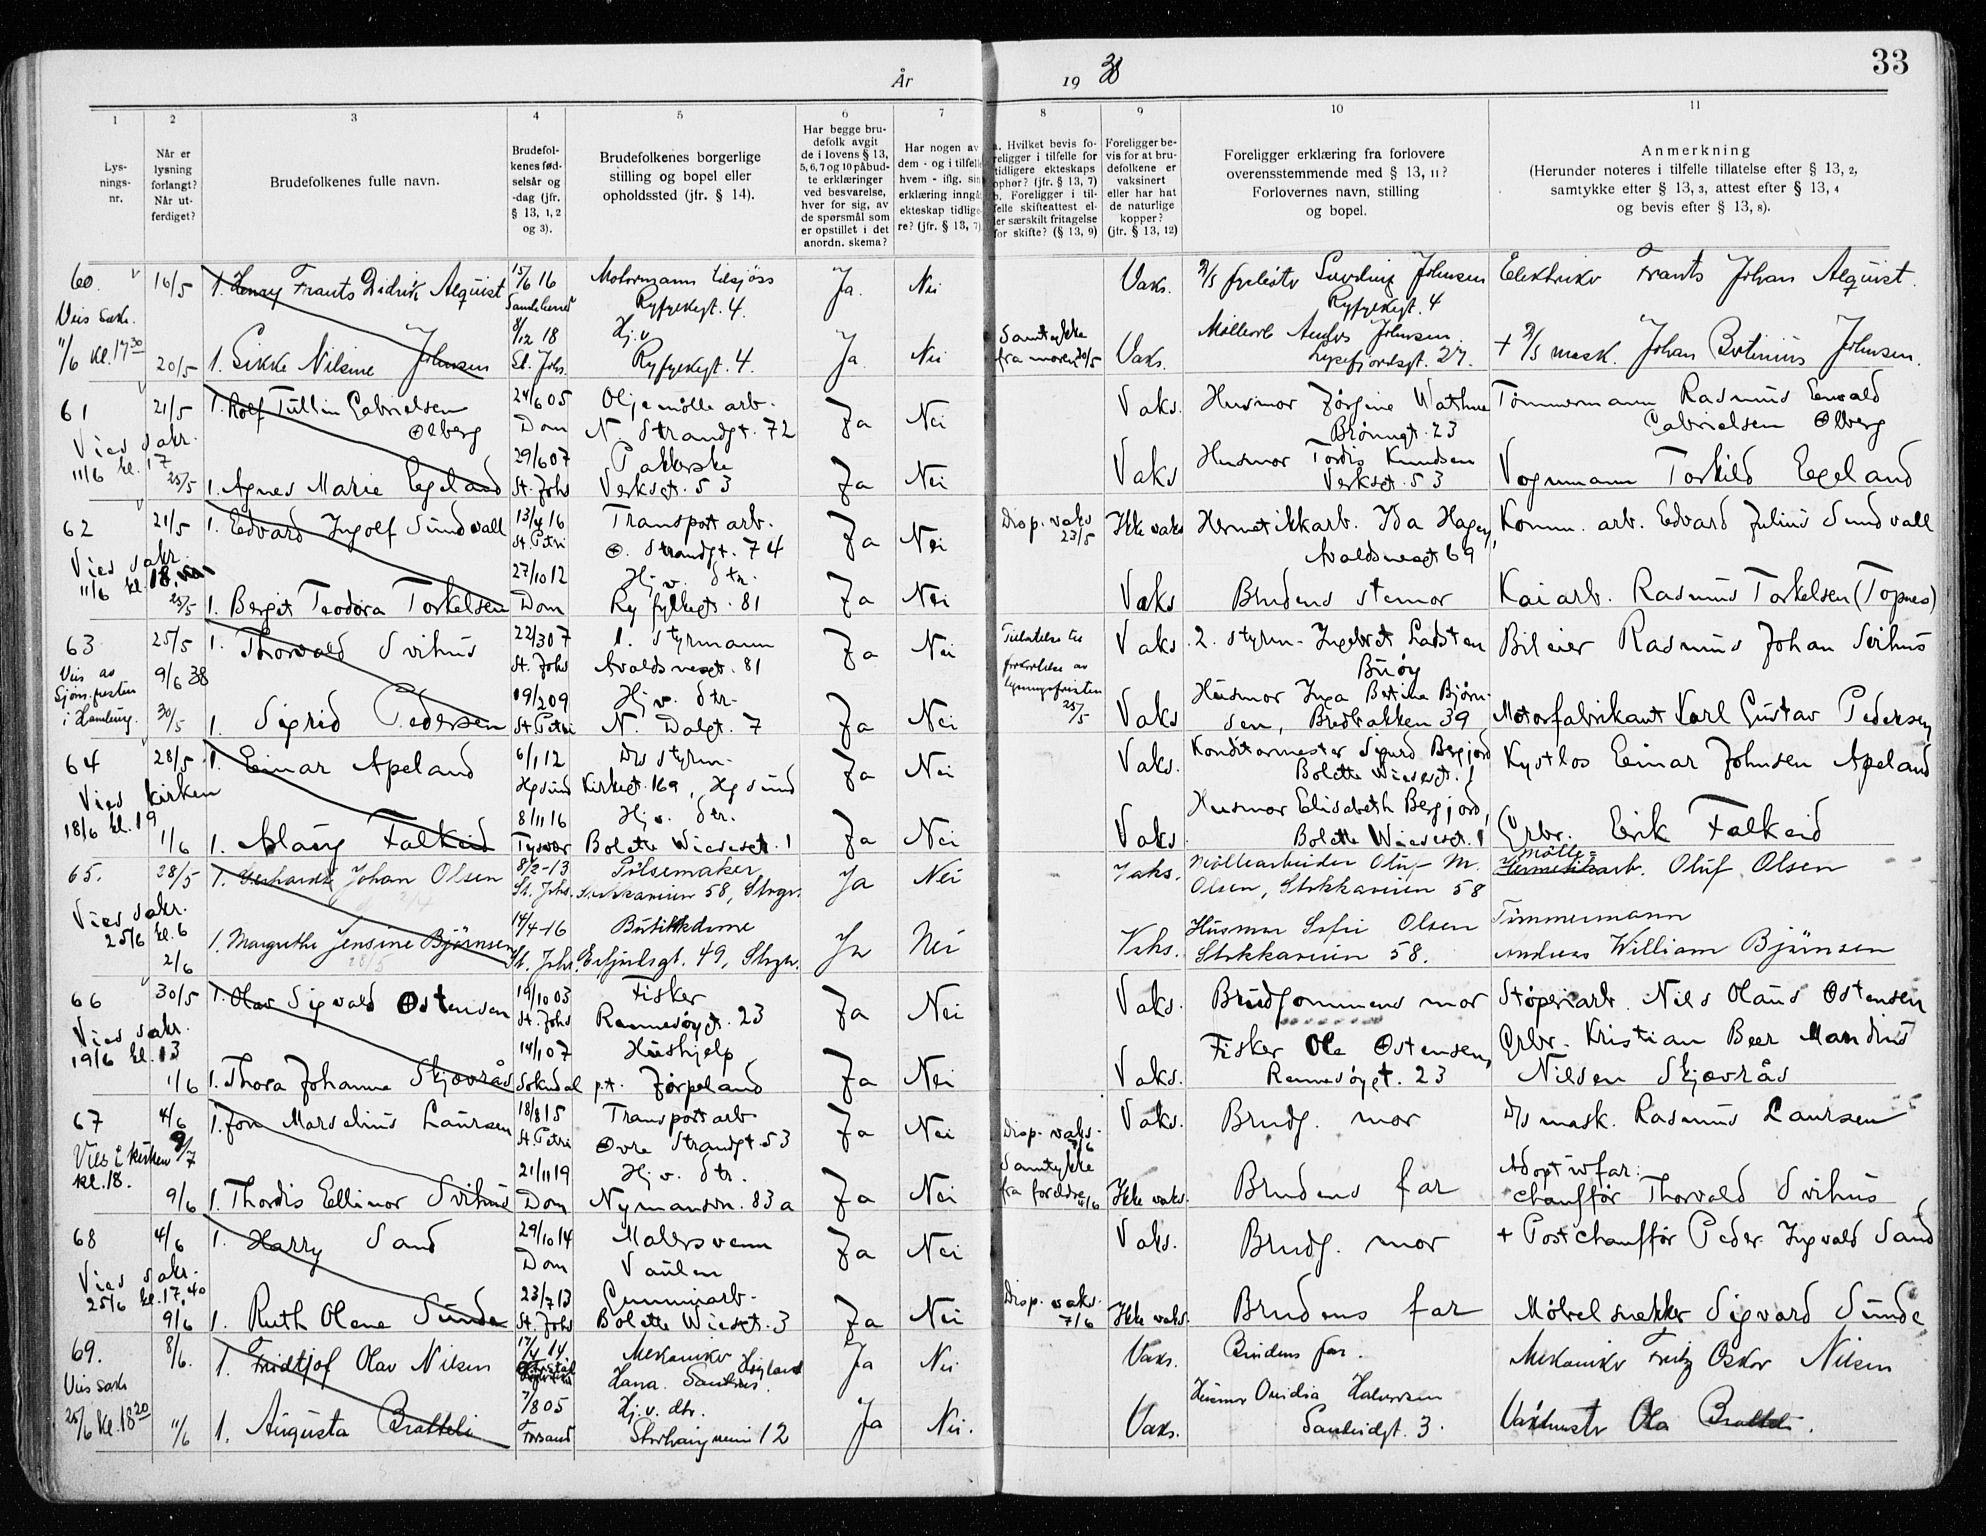 33
År 19 38
1 2 3 4 5 6 7 8 9 10 11
Lys-
nings-
nr.
Når er
lysning
forlangt?
Når ut-
ferdiget?
Brudefolkenes fulle navn.
Brudefol-
kenes fød-
selsår og
-dag (jfr.
§ 13, 1, 2
og 3).
Brudefolkenes borgerlige
stilling og bopel eller
opholdssted (jfr. § 14).
Har begge bru-
defolk avgit
de i lovens § 13,
5, 6, 7 og 10 påbud-
te erklæringer
ved besvarelse,
hver for sig, av
de spørsmål som
er opstillet i det
anordn. skema?
Har nogen av
dem - og i tilfelle
hvem - iflg. sin
erklæring inngå
ekteskap tidlige
re? (jfr. § 13, 7)
a. Hvilket bevis fo-
religger i tilfelle for
tidligere ekteskaps
ophør? (jfr. § 13, 7)
b. Foreligger i til-
felle skifteattest el-
ler særskilt fritagelse
for skifte? (§ 13, 9)
Foreligger be-
vis for at bru-
defolkene er
vaksinert
eller har hat
de naturlige
kopper?
(jfr. § 13, 12)
Foreligger erklæring fra forlovere
overensstemmende med § 13, 11?
Forlovernes navn, stilling
og bopel.
Anmerkning
(Herunder noteres i tilfelle tillatelse efter § 13, 2,
samtykke efter § 13, 3, attest efter § 13, 4
og bevis efter § 13, 8).
60. 16/5 1. Henry Frants Didrik Alquist 15/6 16 Motormann tilsjøs Ja. Nei Vaks. Johnsen Elektriker Frants Johan Alquist.
Ryfylkegt. 4. Ryfylkegt. 4
Vies sakr. 8/12 18 Hj.v.
11/6 kl. 17 30 20/5 1. Sikke Nilsine Johnsen St. Johs. Ryfylkegt. 4. Ja. Nei Samtykke fra moren 20/5 Vaks. Møllerarb. Anders Johnsen Lysefjordsgt. 27. + D/S mask. Johan Botinius Johnsen.
61 21/5 1. Rolf Tullin Gabrielsen 24/6 05 Oljemølle arb. Ja Nei Vaks. Husmor Jørgine Wathne Tømmermann Rasmus Enwald
Ølberg Dom N. Strandgt. 72 Brønngt. 23 Gabrielsen Ølberg
Vies sakr. 29/6 07 Pakkerske Husmor Tordis Knudsen
11/6 kl. 17 25/5 1. Agnes Marie Egeland St. Johs Verksgt. 53 Ja Nei Vaks Verksgt. 53 Vognmann Torkild Egeland
62 21/5 1. Edvard Ingolf Sundvall 13/4 16 Transport arb. Ja Nei Disp. vaks 23/5 Ikke vaks Hermetikkarb. Ida Hagen, Komm. arb. Edvard Julius Sundvall
St. Petri Ø. Strandgt. 74 Avaldsnesgt 69
Vies sakr. 27/10 12 Hj. v. dtr.
11/6 kl. 18. 25/5 1. Bergit Teodora Torkelsen Dom Ryfylkegt. 81 Ja Nei Vaks Brudens stemor Kaiarb. Rasmus Torkelsen (Topnes)
63 25/5 1. Thorvald Svihus 22/3 07 1. styrmann Ja Nei Tillatelse til Vaks. 2. styrm. Ingebret Ladsten Bileier Rasmus Johan Svihus
St. Johs Avaldsnesgt. 81 Buøy
Vies av Sjøm.presten i Hamburg. 9/6 38 19/2 09 Hj. v. dtr. forkortelse av lysningsfristen 25/5 Husmor Inga Betine Bjørn-
30/5 1. Sigrid Pedersen St. Petri N. Dalgt. 7 Ja Nei Vaks sen, Bredbakken 39 Motorfabrikant Karl Gustav Pedersen
64 28/5 1. Einar Apeland 6/1 12 D/s styrm. Ja Nei Vaks. Konditormester Sigurd Bergjord Kystlos Einar Johnsen Apeland
Hgsund Kirkegt. 169, Hgsund Bolette Wiesesgt. 1
Vies kirken 8/11 16 Hj. v. dtr. Husmor Elisabeth Bergjord,
18/6 kl. 19 1/6 1. Aslaug Falkeid Tysvær Bolette Wiesesgt. 1 Ja Nei Vaks. Bolette Wiesesgt. 1 Grbr. Erik Falkeid
65. 28/5 1. Johan Olsen 8/2-13 Pølsemaker Ja Nei Vaks. Møllearbeider Oluf M. Mølle- arb. Oluf Olsen
St. Johs. Stokkaveien 58, Stvgr. Olsen, Stokkaveien 58
Vies sakr. 14/4-16 Butikkdame Husmor Sofie Olsen Tømmermann
25/6 kl. 6 2/6 1. Margrethe Jensine Bjørnsen St. Johs. Erfjordsgt. 49, Stvgr. Ja Nei Vaks. Stokkaveien 58. Andreas William Bjørnsen
66 30/5 1. Olav Sigvald Østensen 19/10 03 Fisker Ja Nei Vaks. Brudgommens mor Støperiarb. Nils Olaus Østensen
St. Johs Rennesøygt. 23
Vies sakr. 14/1 07 Hushjelp Fisker Ole Østensen, Grbr. Kristian Beer Mandius
19/6 kl. 13 1/6 1. Thora Johanne Skjævrås Sokndal p.t. Jørpeland Ja Nei Vaks. Rennesøygt. 23 Nilsen Skjævrås
67 4/6 1. Jon Marselius Laursen 18/8 15 Transport arb Ja Nei Disp. vaks. 7/6 Vaks. Brudg. mor D/s mask. Rasmus Laursen
St. Petri Øvre Strandgt. 53
Vies i kirken 9/7 kl. 18. 21/11 19 Hj. v. dtr. Samtykke fra foreldre 4/6 Adoptivfar:
9/6 1. Thordis Ellinor Svihus Dom Nymansvn. 83 a Ja Nei Ikke vaks. Brudens far chauffør Thorvald Svihus
68 4/6 1. Harry Sand 29/10 14 Malersvenn Ja Nei Vaks. Brudg. mor + Postchauffør Peder Ingvald Sand
Dom Vaulen
Vies sakr. 23/7 13 Gummiarb.
25/6 kl. 17,40 9/6 1. Ruth Olene Sunde St. Johs Bolette Wiesesgt. 3 Ja Nei Disp. vaks. 7/6 Ikke vaks. Brudens far Møbelsnekker Sigvard Sunde
69. 8/6. 1. Fridtjof Olav Nilsen 17/4 14 Mekaniker Ja Nei Vaks. Brudens far. Mekaniker Fritz Oskar Nilsen
Hana. Sandnes. Høyland
Vies sakr 7/8 05 Hj. v. dtr. Husmor Ovidia Halvorsen
25/6 kl. 18 20 11/6 1. Augusta Bratteli Forsand Storhaugveien 12 Ja Nei. Vaks. Sandeidgt. 3. Vaktmester Ola Bratteli.